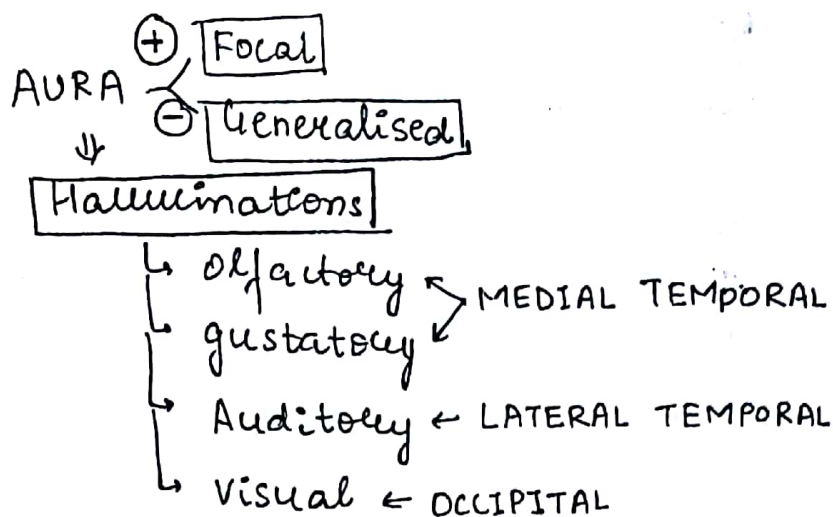 ⊕ Focal
AURA
⊖ Generalised
⇓
Hallucinations
↳ Olfactory
↳ gustatory
MEDIAL TEMPORAL
↳ Auditory ← LATERAL TEMPORAL
↳ Visual ← OCCIPITAL